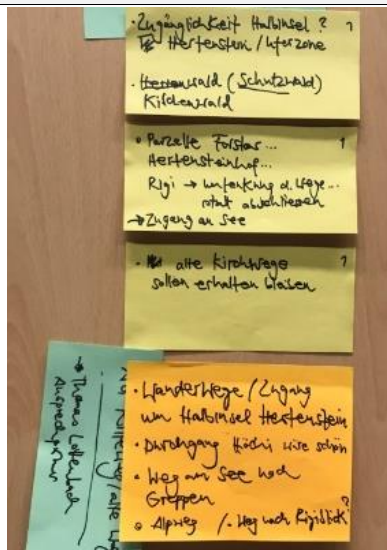 • Zugänglichkeit Halbinsel ? 1
Hertenstein / Uferzone
• Herrenwald (Schutzwald)
Kirchenwald
• Parzelle Forster... 1
Hertensteinhof...
Rigi → umlenkung d. Wege...
statt abschliessen
→ Zugang an See
• alte Kirchwege 1
sollen erhalten bleiben
• Wanderwege / Zugang
um Halbinsel Hertenstein
• Durchgang wäre schön
• Weg am See nach
Greppen 2
• Alpweg / • Weg nach Rigiblick
→ Thomas
Ansprechpartner